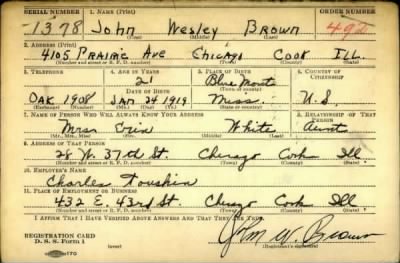 SERIAL NUMBER 1. NAME (Print) ORDER NUMBER
1378 John Wesley Brown 492
(First) (Middle) (Last)
2. ADDRESS (Print)
4105 Prairie Ave Chicago Cook Ill.
(Number and street or R. F. D. number) (Town) (County) (State)
3. TELEPHONE 4. AGE IN YEARS 5. PLACE OF BIRTH 6. COUNTRY OF CITIZENSHIP
21 Blue Mont
DATE OF BIRTH (Town or county)
Oak 1908 Jan 24 1919 Miss. U.S.
(Exchange) (Number) (Mo.) (Day) (Yr.) (State or country)
7. NAME OF PERSON WHO WILL ALWAYS KNOW YOUR ADDRESS 8. RELATIONSHIP OF THAT PERSON
Mrs White Aunt
(Mr., Mrs., Miss) (First) (Middle) (Last)
9. ADDRESS OF THAT PERSON
28 W. 37th St. Chicago Cook Ill
(Number and street or R. F. D. number) (Town) (County) (State)
10. EMPLOYER'S NAME
Charles
11. PLACE OF EMPLOYMENT OR BUSINESS
432 E. 43rd St. Chicago Cook Ill
(Number and street or R. F. D. number) (Town) (County) (State)
I AFFIRM THAT I HAVE VERIFIED ABOVE ANSWERS AND THAT THEY ARE TRUE.
REGISTRATION CARD
D. S. S. Form 1 (over) John W Brown
(Registrant's signature)